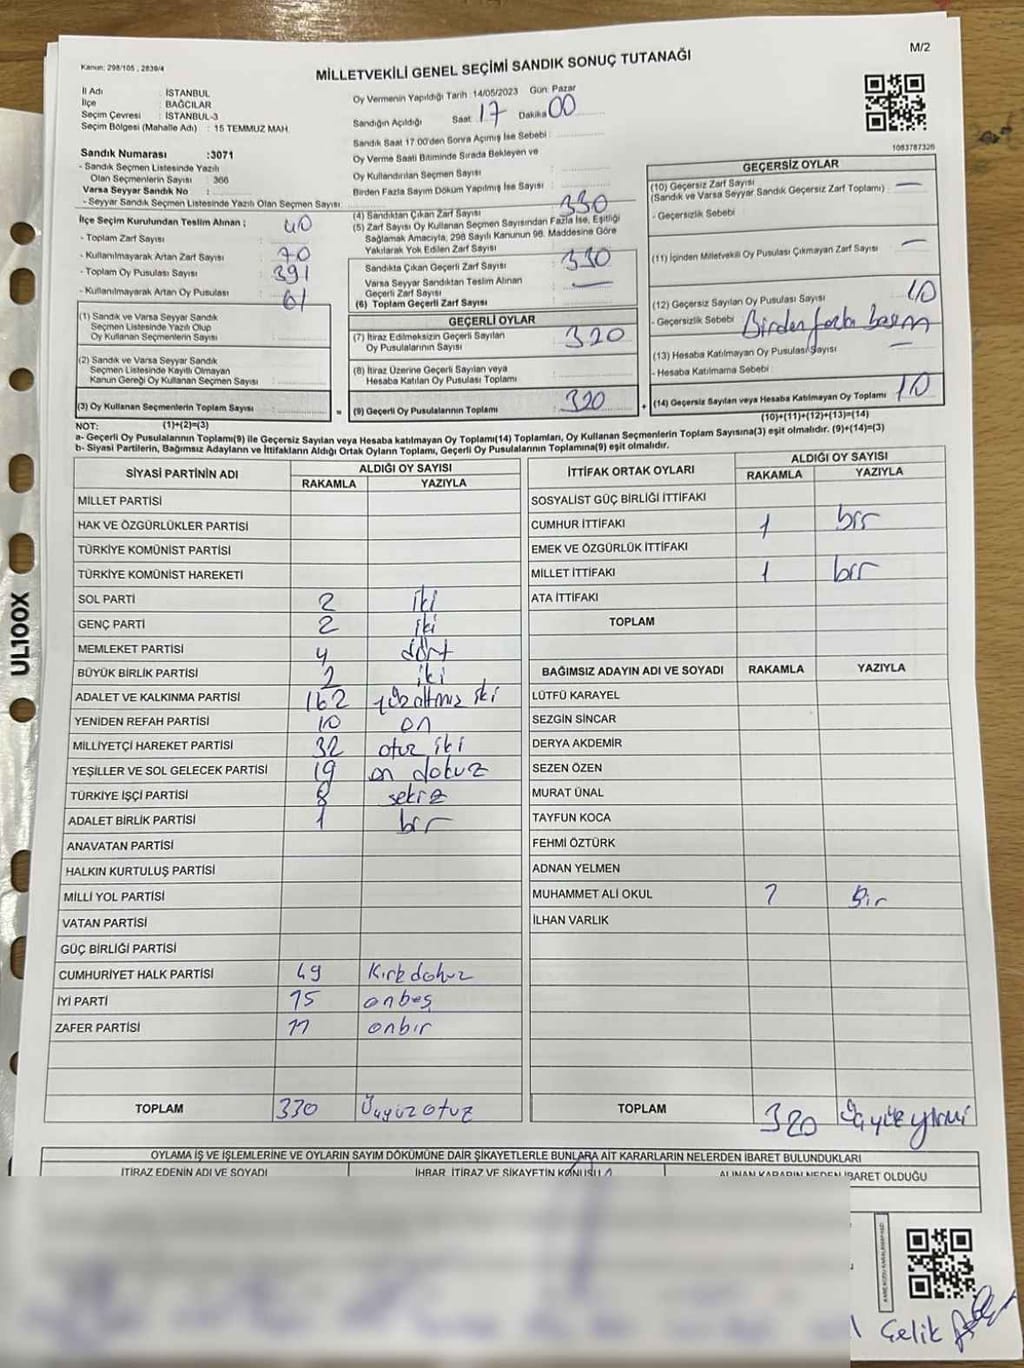 M/2
Kanun: 298/105 , 2839/4
MİLLETVEKİLİ GENEL SEÇİMİ SANDIK SONUÇ TUTANAĞI
İl Adı : İSTANBUL
İlçe : BAĞCILAR
Seçim Çevresi : İSTANBUL-3
Seçim Bölgesi (Mahalle Adı) : 15 TEMMUZ MAH.
Sandık Numarası :3071
- Sandık Seçmen Listesinde Yazılı
Olan Seçmenlerin Sayısı : 366
Varsa Seyyar Sandık No :
- Seyyar Sandık Seçmen Listesinde Yazılı Olan Seçmen Sayısı:
Oy Vermenin Yapıldığı Tarih :14/05/2023 Gün: Pazar
Sandığın Açıldığı Saat: 17 Dakika 00
Sandık Saat 17:00'den Sonra Açılmış İse Sebebi :
Oy Verme Saati Bitiminde Sırada Bekleyen ve
Oy Kullandırılan Seçmen Sayısı :
Birden Fazla Sayım Döküm Yapılmış İse Sayısı :
1083787326
İlçe Seçim Kurulundan Teslim Alınan ;
- Toplam Zarf Sayısı : 40
- Kullanılmayarak Artan Zarf Sayısı : 70
- Toplam Oy Pusulası Sayısı : 391
- Kullanılmayarak Artan Oy Pusulası : 61
(1) Sandık ve Varsa Seyyar Sandık
Seçmen Listesinde Yazılı Olup
Oy Kullanan Seçmenlerin Sayısı :
(2) Sandık ve Varsa Seyyar Sandık
Seçmen Listesinde Kayıtlı Olmayan
Kanun Gereği Oy Kullanan Seçmen Sayısı :
(3) Oy Kullanan Seçmenlerin Toplam Sayısı :
(4) Sandıktan Çıkan Zarf Sayısı : 330
(5) Zarf Sayısı Oy Kullanan Seçmen Sayısından Fazla İse, Eşitliği
Sağlamak Amacıyla, 298 Sayılı Kanunun 98. Maddesine Göre
Yakılarak Yok Edilen Zarf Sayısı :
Sandıkta Çıkan Geçerli Zarf Sayısı : 330
Varsa Seyyar Sandıktan Teslim Alınan
Geçerli Zarf Sayısı : —
(6) Toplam Geçerli Zarf Sayısı :
GEÇERLİ OYLAR
(7) İtiraz Edilmeksizin Geçerli Sayılan
Oy Pusulalarının Sayısı : 320
(8) İtiraz Üzerine Geçerli Sayılan veya
Hesaba Katılan Oy Pusulası Toplamı :
= (9) Geçerli Oy Pusulalarının Toplamı : 320
GEÇERSİZ OYLAR
(10) Geçersiz Zarf Sayısı : —
(Sandık ve Varsa Seyyar Sandık Geçersiz Zarf Toplamı)
- Geçersizlik Sebebi :
(11) İçinden Milletvekili Oy Pusulası Çıkmayan Zarf Sayısı : —
(12) Geçersiz Sayılan Oy Pusulası Sayısı : 10
- Geçersizlik Sebebi : Birden fazla basım
(13) Hesaba Katılmayan Oy Pusulası Sayısı : —
- Hesaba Katılmama Sebebi :
+ (14) Geçersiz Sayılan veya Hesaba Katılmayan Oy Toplamı : 10
NOT: (1)+(2)=(3)
(10)+(11)+(12)+(13)=(14)
a- Geçerli Oy Pusulalarının Toplamı(9) ile Geçersiz Sayılan veya Hesaba katılmayan Oy Toplamı(14) Toplamları, Oy Kullanan Seçmenlerin Toplam Sayısına(3) eşit olmalıdır. (9)+(14)=(3)
b- Siyasi Partilerin, Bağımsız Adayların ve İttifakların Aldığı Ortak Oyların Toplamı, Geçerli Oy Pusulalarının Toplamına(9) eşit olmalıdır.
SİYASİ PARTİNİN ADI ALDIĞI OY SAYISI
RAKAMLA YAZIYLA
MİLLET PARTİSİ
HAK VE ÖZGÜRLÜKLER PARTİSİ
TÜRKİYE KOMÜNİST PARTİSİ
TÜRKİYE KOMÜNİST HAREKETİ
SOL PARTİ 2 iki
GENÇ PARTİ 2 iki
MEMLEKET PARTİSİ 4 dört
BÜYÜK BİRLİK PARTİSİ 2 iki
ADALET VE KALKINMA PARTİSİ 162 yüzaltmış iki
YENİDEN REFAH PARTİSİ 10 on
MİLLİYETÇİ HAREKET PARTİSİ 32 otuz iki
YEŞİLLER VE SOL GELECEK PARTİSİ 19 on dokuz
TÜRKİYE İŞÇİ PARTİSİ 8 sekiz
ADALET BİRLİK PARTİSİ 1 bir
ANAVATAN PARTİSİ
HALKIN KURTULUŞ PARTİSİ
MİLLİ YOL PARTİSİ
VATAN PARTİSİ
GÜÇ BİRLİĞİ PARTİSİ
CUMHURİYET HALK PARTİSİ 49 Kırk dokuz
İYİ PARTİ 15 onbeş
ZAFER PARTİSİ 11 onbir
TOPLAM 330 Üçyüz otuz
İTTİFAK ORTAK OYLARI ALDIĞI OY SAYISI
RAKAMLA YAZIYLA
SOSYALİST GÜÇ BİRLİĞİ İTTİFAKI
CUMHUR İTTİFAKI 1 bir
EMEK VE ÖZGÜRLÜK İTTİFAKI
MİLLET İTTİFAKI 1 bir
ATA İTTİFAKI
TOPLAM
BAĞIMSIZ ADAYIN ADI VE SOYADI RAKAMLA YAZIYLA
LÜTFÜ KARAYEL
SEZGİN SİNCAR
DERYA AKDEMİR
SEZEN ÖZEN
MURAT ÜNAL
TAYFUN KOCA
FEHMİ ÖZTÜRK
ADNAN YELMEN
MUHAMMET ALİ OKUL 1 Bir
İLHAN VARLIK
TOPLAM 320 Üçyüz yirmi
OYLAMA İŞ VE İŞLEMLERİNE VE OYLARIN SAYIM DÖKÜMÜNE DAİR ŞİKAYETLERLE BUNLARA AİT KARARLARIN NELERDEN İBARET BULUNDUKLARI
İTİRAZ EDENİN ADI VE SOYADI İHBAR, İTİRAZ VE ŞİKAYETİN KONUSU ALINAN KARARIN NEDEN İBARET OLDUĞU
Çelik
UL100X